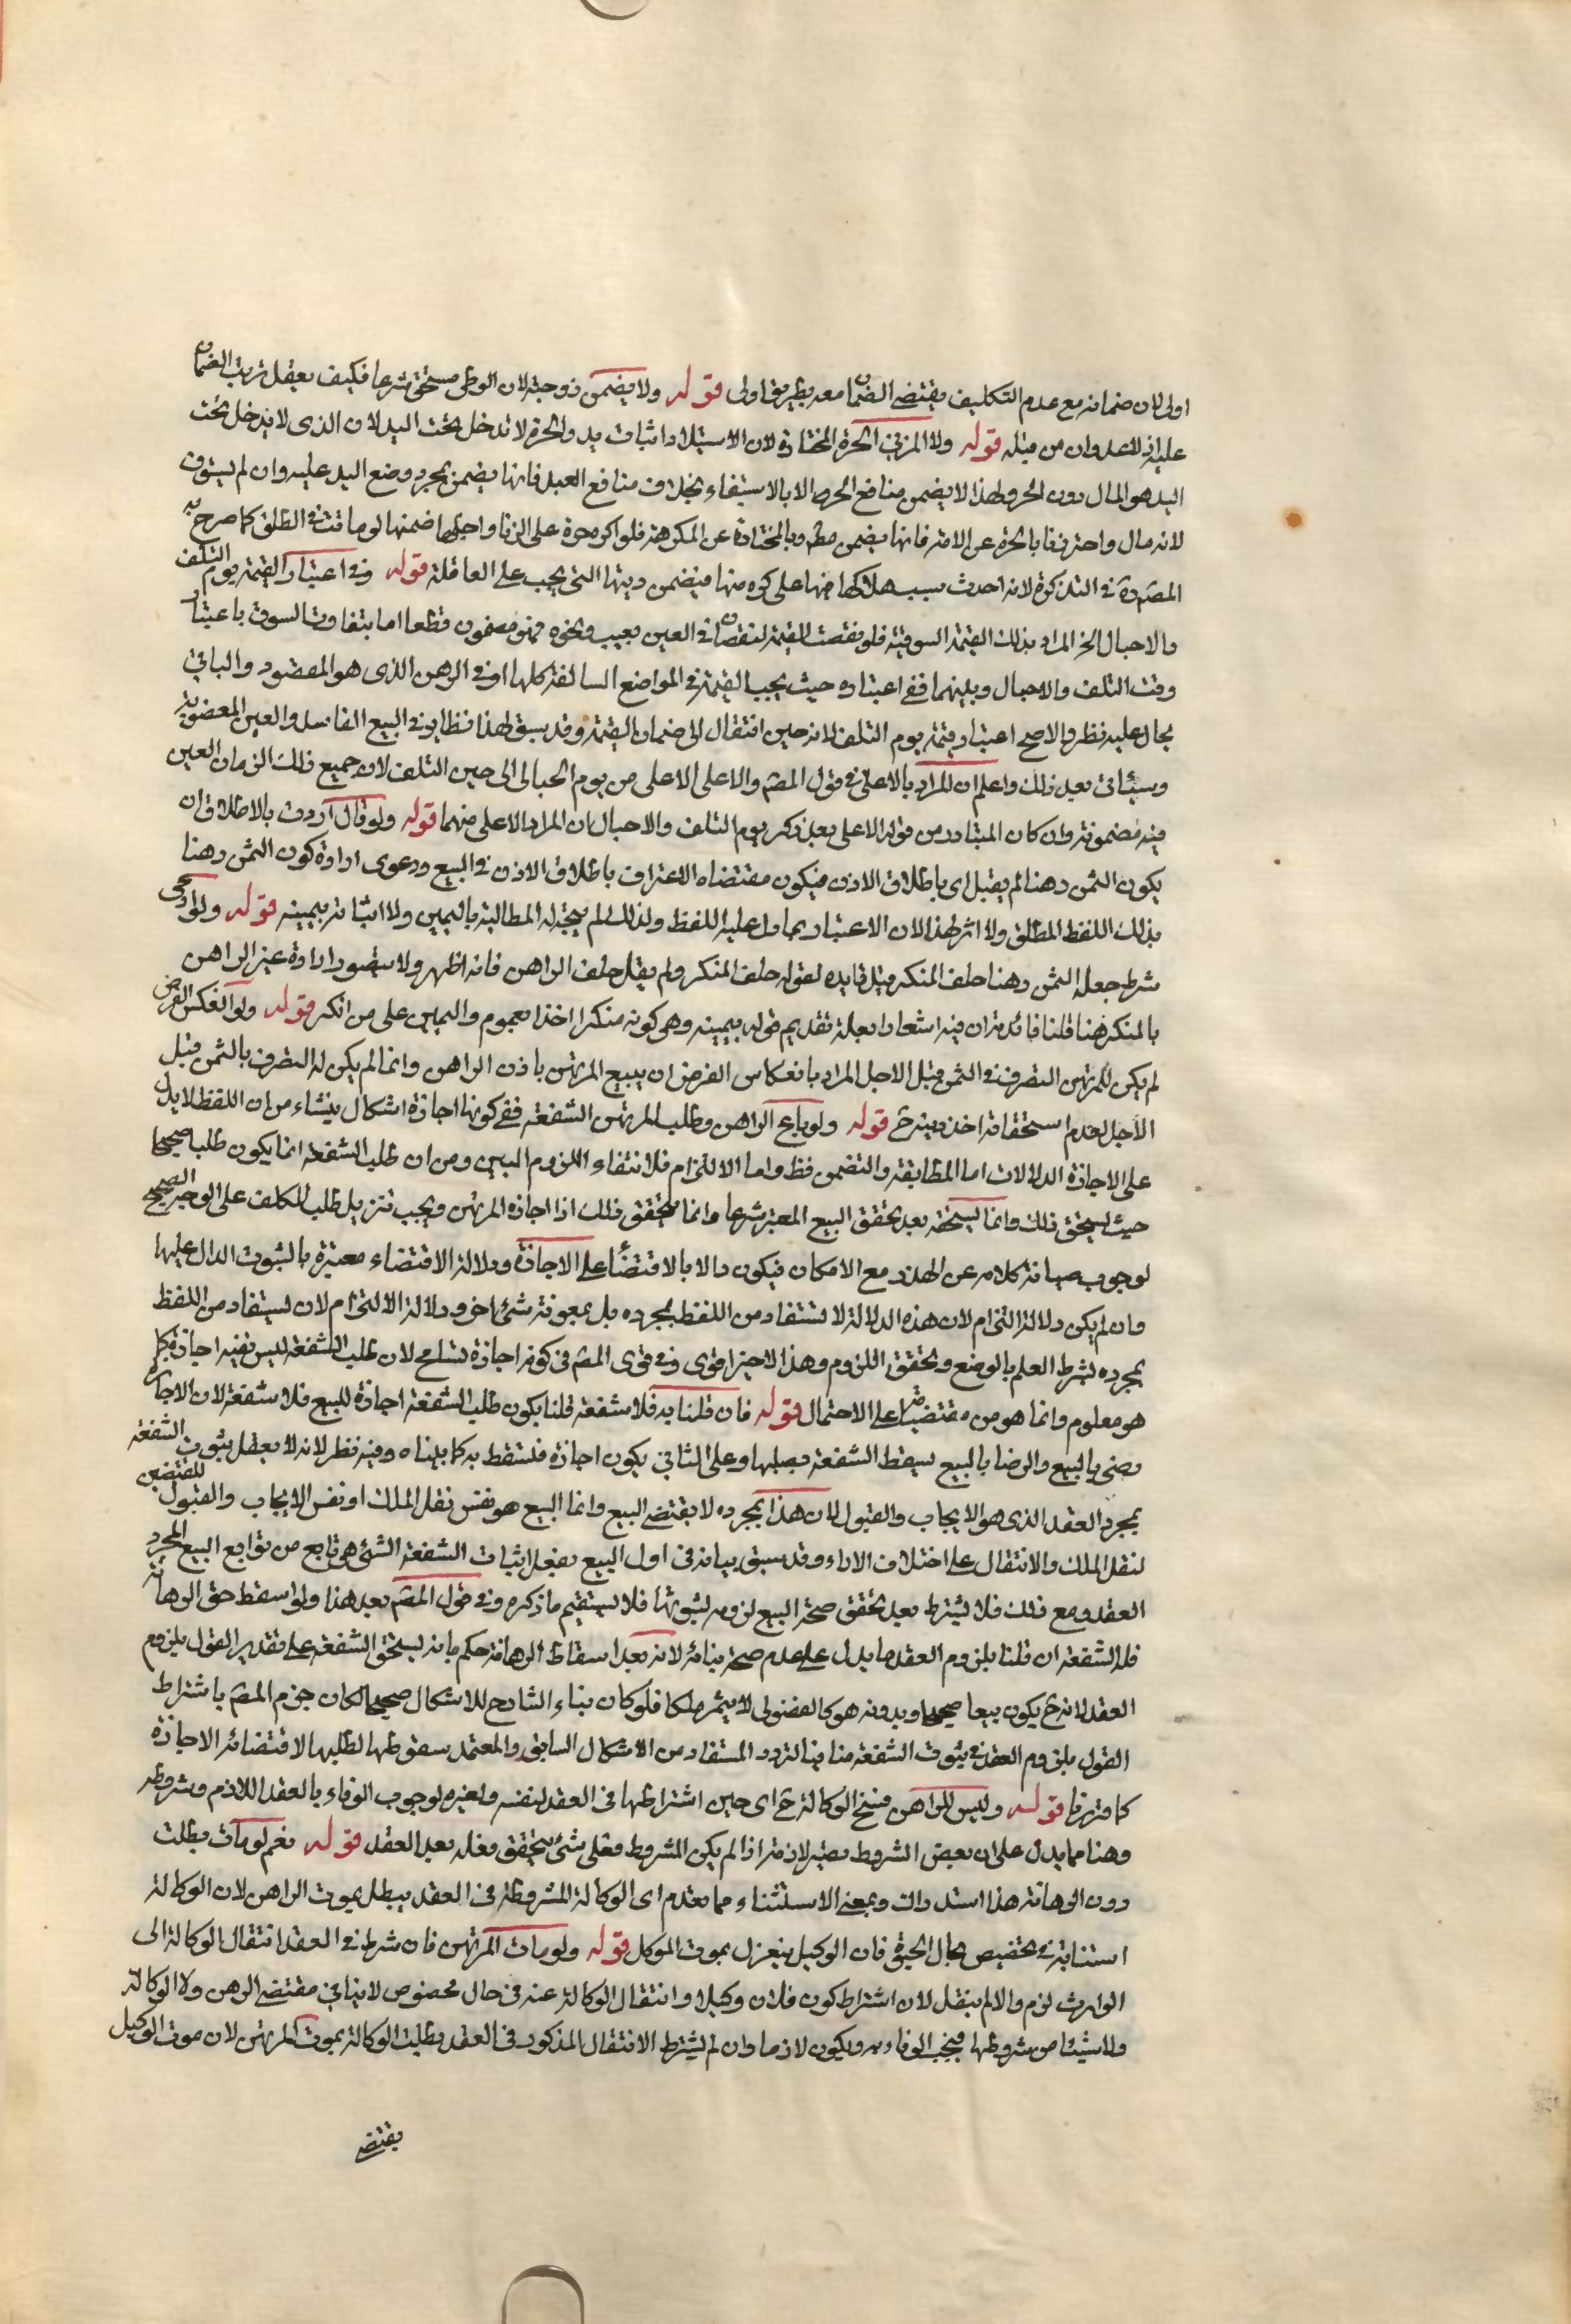 اولى لان ضمانه مع عدم التكليف يقتضى الضمان معه بطريق اولى قوله ولا يضمن زوجته لان الوطى مستحق شرعا فكيف يعقل ترتب الضمان
عليه اذ لا عدوان من قبله قوله ولا المزنى الحرة المختارة لان الاستيلاد اثبات يد والحرة لا تدخل تحت اليد لان الذى لا يدخل تحت
اليد هو المال دون الحر ولهذا لا يضمن منافع الحر الا بالاستيفاء بخلاف منافع العبد فانها يضمن بمجرد وضع اليد عليه وان لم يستوف
لانه مال واحترزنا بالحرة عن الامة فانها يضمن مطم وبالمختارة عن المكرهة فلو اكره حرة على الزنا واحبلها ضمنها لو ماتت فى الطلق كما صرح به
المصم ره فى التذكرة لانه احدث سبب هلاكها فيها على كره منها فيضمن ديتها التى يجب على العاقلة قوله وفى اعتبار القيمة يوم التلف
والاحبال الخ المراد بذلك القيمة السوقية فلو نقصت القيمة لنقصان فى العين بعيب ونحوه فهو مضمون قطعا اما بتفاوت السوق باعتبار
وقت التلف والاحبال وبينهما ففى اعتباره حيث يجب القيمة فى المواضع السالفة كلها او فى الرهن الذى هو المقصود والباقى
يحال عليه نظر والاصح اعتبار قيمته يوم التلف لانه حين انتقال الى ضمان القيمة وقد سبق لهذا نظاير فى البيع الفاسد والعين المغصوبة
وسيئاتى بعد ذلك واعلم ان المراد بالاعلى فى قول المصم والاعلى الاعلى من يوم الحبالى الى حين التلف لان جميع ذلك الزمان العين
فيه مضمونة وان كان المتبادر من قوله الاعلى بعد ذكر يوم التلف والاحبال ان المراد الاعلى منهما قوله ولو قال اردت بالاطلاق ان
يكون الثمن رهنا لم يقبل اى باطلاق الاذن فيكون مقتضاه الاعتراف باطلاق الاذن فى البيع ودعوى ارادة كون الثمن رهنا
بذلك اللفظ المطلق ولا اثر لهذا لان الاعتبار بما دل عليه اللفظ ولذلك لم يتجه له المطالبة باليمين ولا اثباته بيمينه قوله ولو ادعى
شرط جعل الثمن رهنا حلف المنكر قيل فايده لقوله حلف المنكر ولم يقل حلف الراهن فانه اظهر ولا يتصور ارادة غير الراهن
بالمنكر هنا قلنا فائدته ان فيه اشعارا بعلة تقديم قوله بيمينه وهى كونه منكرا اخذا بعموم واليمين على من انكر قوله ولو انعكس الفرض
لم يكن للمرتهن التصرف فى الثمن قبل الاجل المراد بانعكاس الفرض ان يبيع المرتهن باذن الراهن وانما لم يكن له التصرف بالثمن قبل
الاجل لعدم استحقاقه اخذ دينه ح قوله ولو باع الراهن وطلب المرتهن الشفعة ففى كونها اجازة اشكال ينشاء من ان اللفظ لا يدل
على الاجازة الدلالات اما المطابقة والتضمن فظ واما الالتزام فلانتفاء اللزوم البين ومن ان طلب الشفعة انما يكون طلبا صحيحا
حيث يستحق ذلك وانما يستحقه بعد تحقق البيع المعتبر شرعا وانما يتحقق ذلك اذا اجازه المرتهن ويجب تنزيل طلب المكلف على الوجه الصحيح
لوجوب صيانة كلامه عن الهذر مع الامكان فيكون دالا بالاقتضاء على الاجازة ودلالة الاقتضاء معتبرة بالثبوت الدال عليها
وان لم يكن دلالة التزام لان هذه الدلالة لا تستفاد من اللفظ بمجرده بل بمعونة شئ اخر ودلالة الالتزام لان يستفاد من اللفظ
بمجرده بشرط العلم بالوضع وتحقق اللزوم وهذا الاخير اقوى وفى قوى المصم فى كونه اجازة تسامح لان طلب الشفعة ليس نفيه اجازة كما
هو معلوم وانما هو من مقتضياته على الاحتمال قوله فان قلنا به فلا شفعة قلنا يكون طلب الشفعة اجازة للبيع فلا شفعة لان الاجازة
رضى بالبيع والرضا بالبيع يسقط الشفعة قبلها وعلى الثانى يكون اجازة فتسقط به كما بيناه وفيه نظر لانه لا يعقل ثبوت الشفعة
بمجرد العقد الذى هو الايجاب والقبول لان هذا بمجرده لا يقتضى البيع وانما البيع هو نفس نقل الملك او نفس الايجاب والقبول المقتضيين
لنقل الملك والانتقال على اختلاف الاراء وقد سبق بيانه فى اول البيع فبعد اثبات الشفعة الشئ هى تابع من توابع البيع المجرد
العقد ومع ذلك فلا يشترط بعد تحقق صحة البيع لزومه لثبوتها فلا يستقيم ما ذكره وفى قول المصم بعد هذا ولو اسقط حق الرهانة
فله الشفعة ان قلنا بلزوم العقد ما يدل على عدم صحة بنائه لانه بعد اسقاط الرهانة حكم بانه يستحق الشفعة على تقدير القول بلزوم
العقد لانه ح يكون بيعا صحيحا وبدونه هو كالفضولى لا يثمر ملكا فلو كان بناء الشارح للاشكال صحيحا لكان جزم المصم باشتراط
القول بلزوم العقد فى ثبوت الشفعة منافيا لتردد المستفاد من الاشكال السابق والمعتمد سقوطها لطلبها لاقتضائه الاجازة
كما قررنا قوله وليس للراهن فسخ الوكالة ح اى حين اشتراطها فى العقد لنفسه ولغيره لوجوب الوفاء بالعقد اللازم وشروطه
وهنا مما يدل على ان بعض الشروط يصير لازمة اذا لم يكن المشروط فعلى شئ يتحقق فعله بعد العقد قوله نعم لو مات بطلت
دون الرهانة هذا استدراك وبمعنى الاستثناء مما تقدم اى الوكالة المشروطة فى العقد يبطل بموت الراهن لان الوكالة
استنابة فى تخصيص بحال الحيوة فان الوكيل ينعزل بموت الموكل قوله ولو مات المرتهن فان شرط فى العقد انتقال الوكالة الى
الوارث لزم والا لم ينقل لان اشتراط كون فلان وكيلا وانتقال الوكالة عنه فى حال مخصوص لا ينافى مقتضى الرهن ولا الوكالة
ولا شيئا من شروطها فيجب الوفاء به ويكون لازما وان لم يشترط الانتقال المذكور فى العقد بطلت الوكالة بموت المرتهن لان موت الوكيل
يقتضى